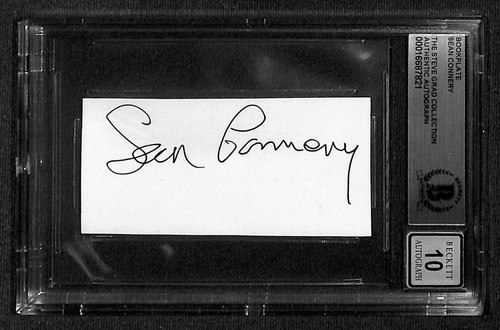 Sean Connery
BOOKPLATE
SEAN CONNERY
THE STEVE GRAD COLLECTION
AUTHENTIC AUTOGRAPH
00016687821
B
BECKETT
AUTOGRAPH
10